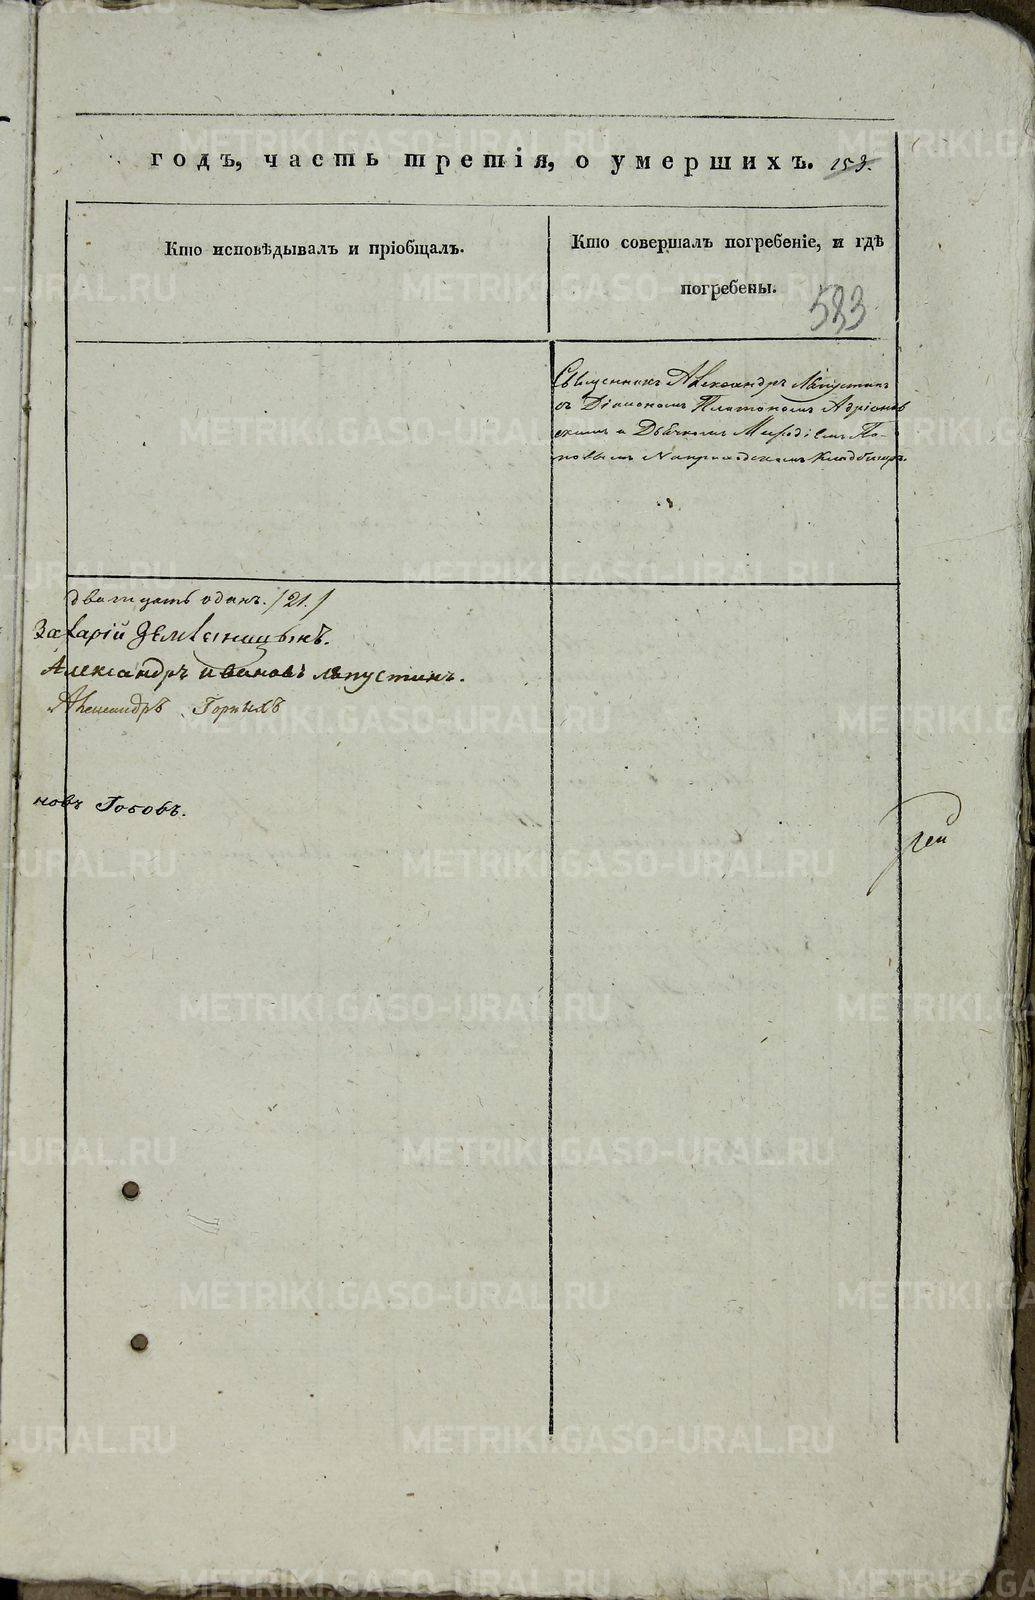 годъ, часть третія, о умершихъ. 153.
Кто исповѣдывалъ и пріобщалъ.
Кто совершалъ погребеніе, и гдѣ
погребены.
583
Священникъ Александръ Лапустинъ
съ Діакономъ Платономъ Адріанов
скимъ и Дьячкомъ Меѳодіемъ По-
повымъ Наприходскомъ Кладбищѣ.
двадцать одинъ. /21./
Захарій Земляницынъ.
Александръ Ивановъ Лапустинъ.
Александръ Горныхъ
новъ Гобовъ.
METRIKI.GASO-URAL.RU